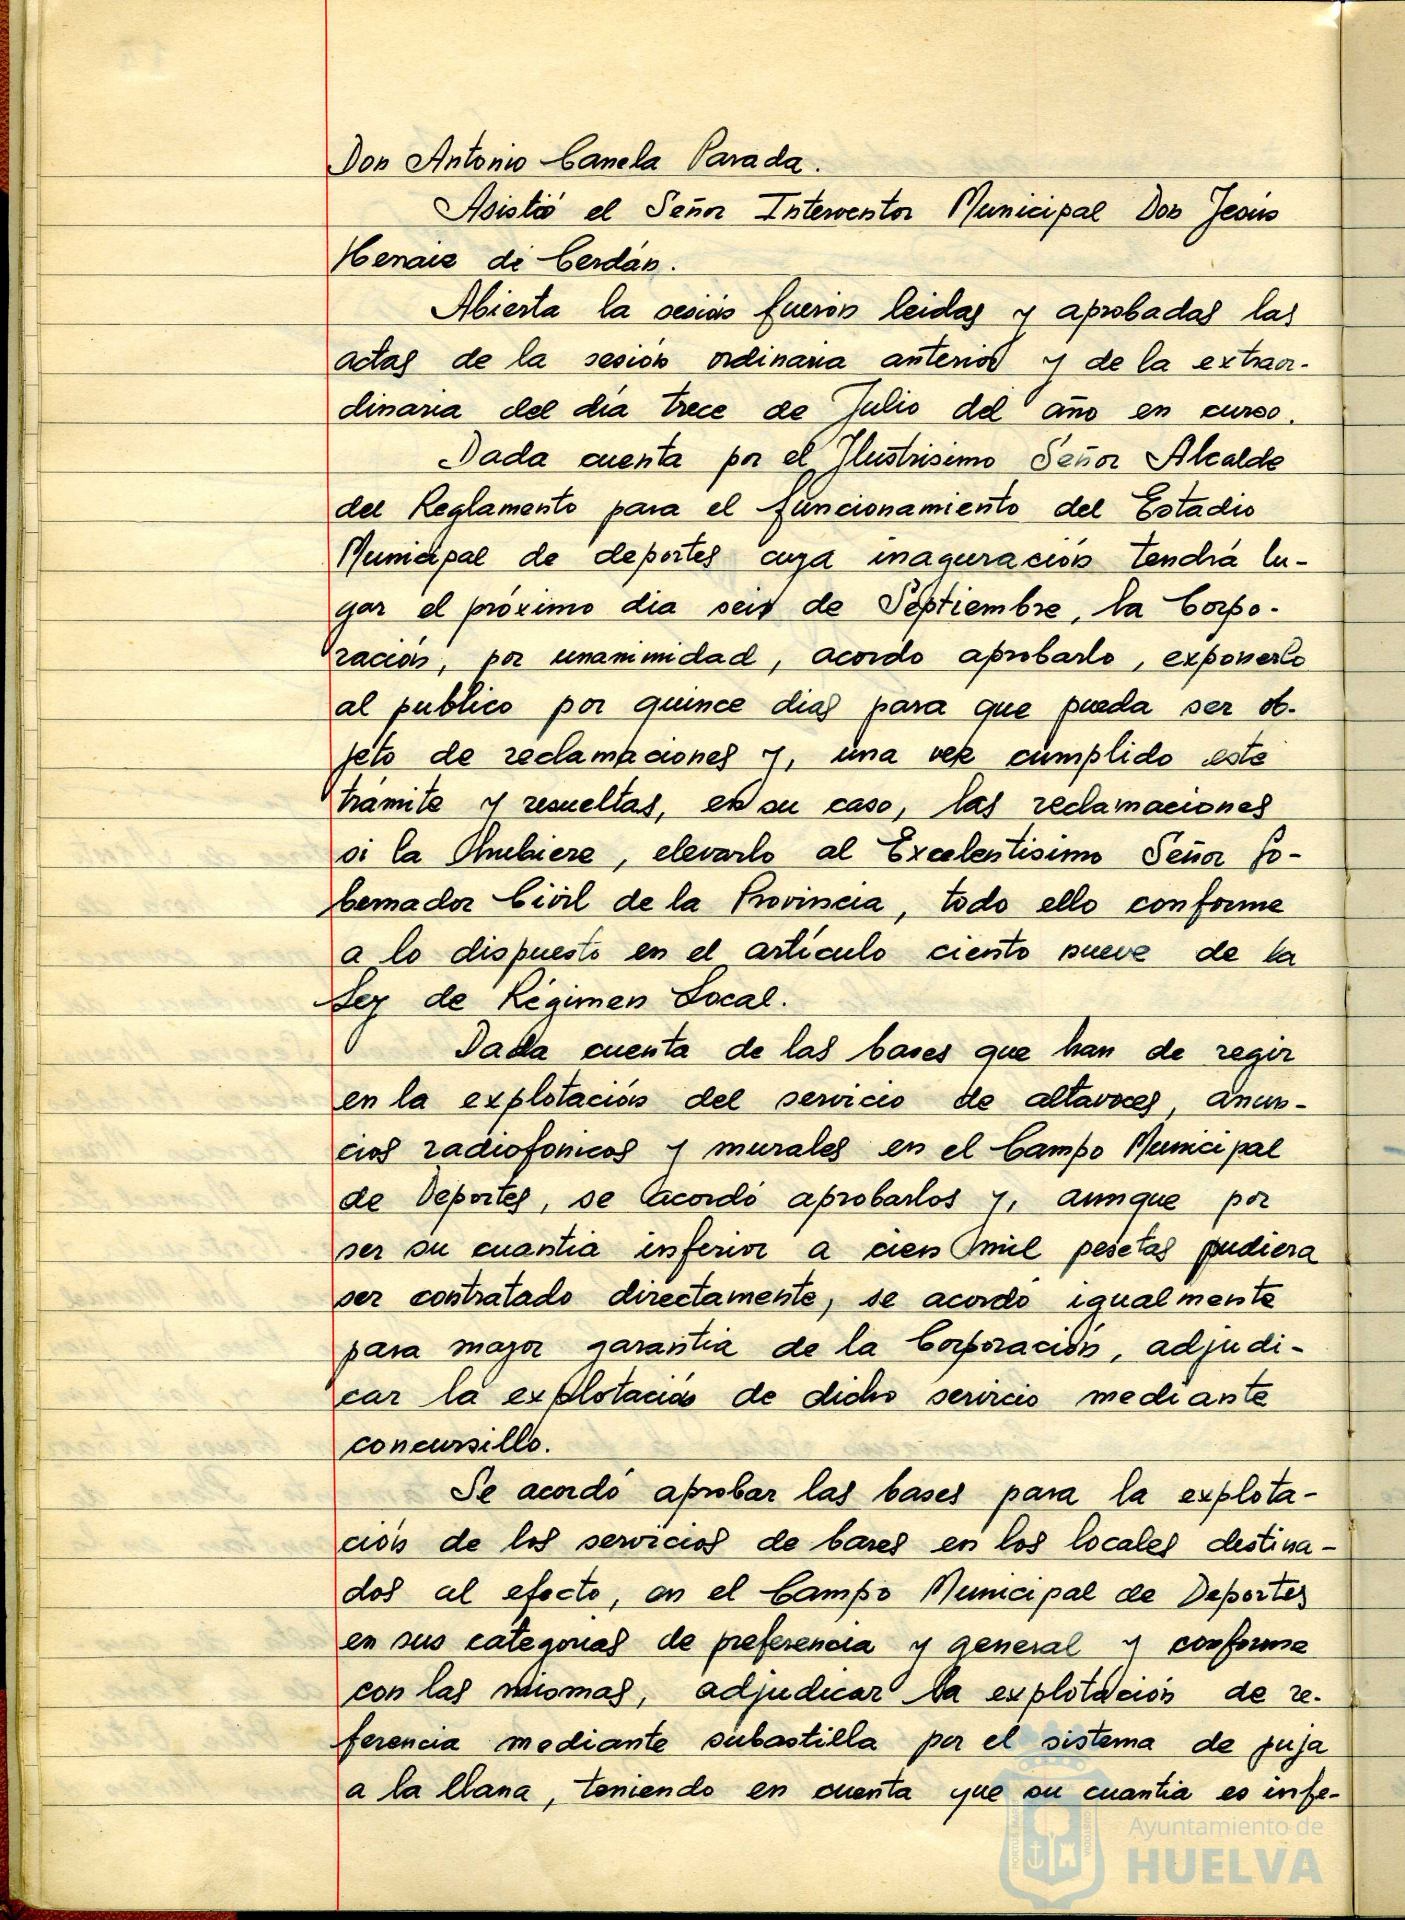 Don Antonio Canela Parada.
Asistió el Señor Interventor Municipal Don Jesús
Henaiz di Cerdán.
Abierta la sesión fuerón leidas y aprobadas las
actas de la sesión ordinaria anterior y de la extraor-
dinaria del día trece de Julio del año en curso.
Dada cuenta por el Ilustrisimo Señor Alcalde
del Reglamento para el funcionamiento del Estadio
Municipal de deportes cuya inaguración tendrá lu-
gar el próximo dia seis de Septiembre, la Corpo-
ración, por unanimidad, acordo aprobarlo, exponerlo
al publico por quince dias para que pueda ser ob-
jeto de reclamaciones y, una vez cumplido este
trámite y resueltas, en su caso, las reclamaciones
si la hubiere, elevarlo al Excelentisimo Señor Go-
bernador Civil de la Provincia, todo ello conforme
a lo dispuesto en el artículo ciento nueve de la
Ley de Régimen Local.
Dada cuenta de las bases que han de regir
en la explotación del servicio de altavoces, anun-
cios radiofonicos y murales en el Campo Municipal
de Deportes, se acordó aprobarlos y, aunque por
ser su cuantia inferior a cien mil pesetas pudiera
ser contratado directamente, se acordó igualmente
para mayor garantia de la Corporación, adjudi-
car la explotación de dicho servicio mediante
concursillo.
Se acordó aprobar las bases para la explota-
ción de los servicios de bares en los locales destina-
dos al efecto, en el Campo Municipal de Deportes
en sus categorias de preferencia y general y conforme
con las mismas, adjudicar la explotación de re-
ferencia mediante subastilla por el sistema de puja
a la llana, teniendo en cuenta que su cuantia es infe-
Ayuntamiento de
HUELVA